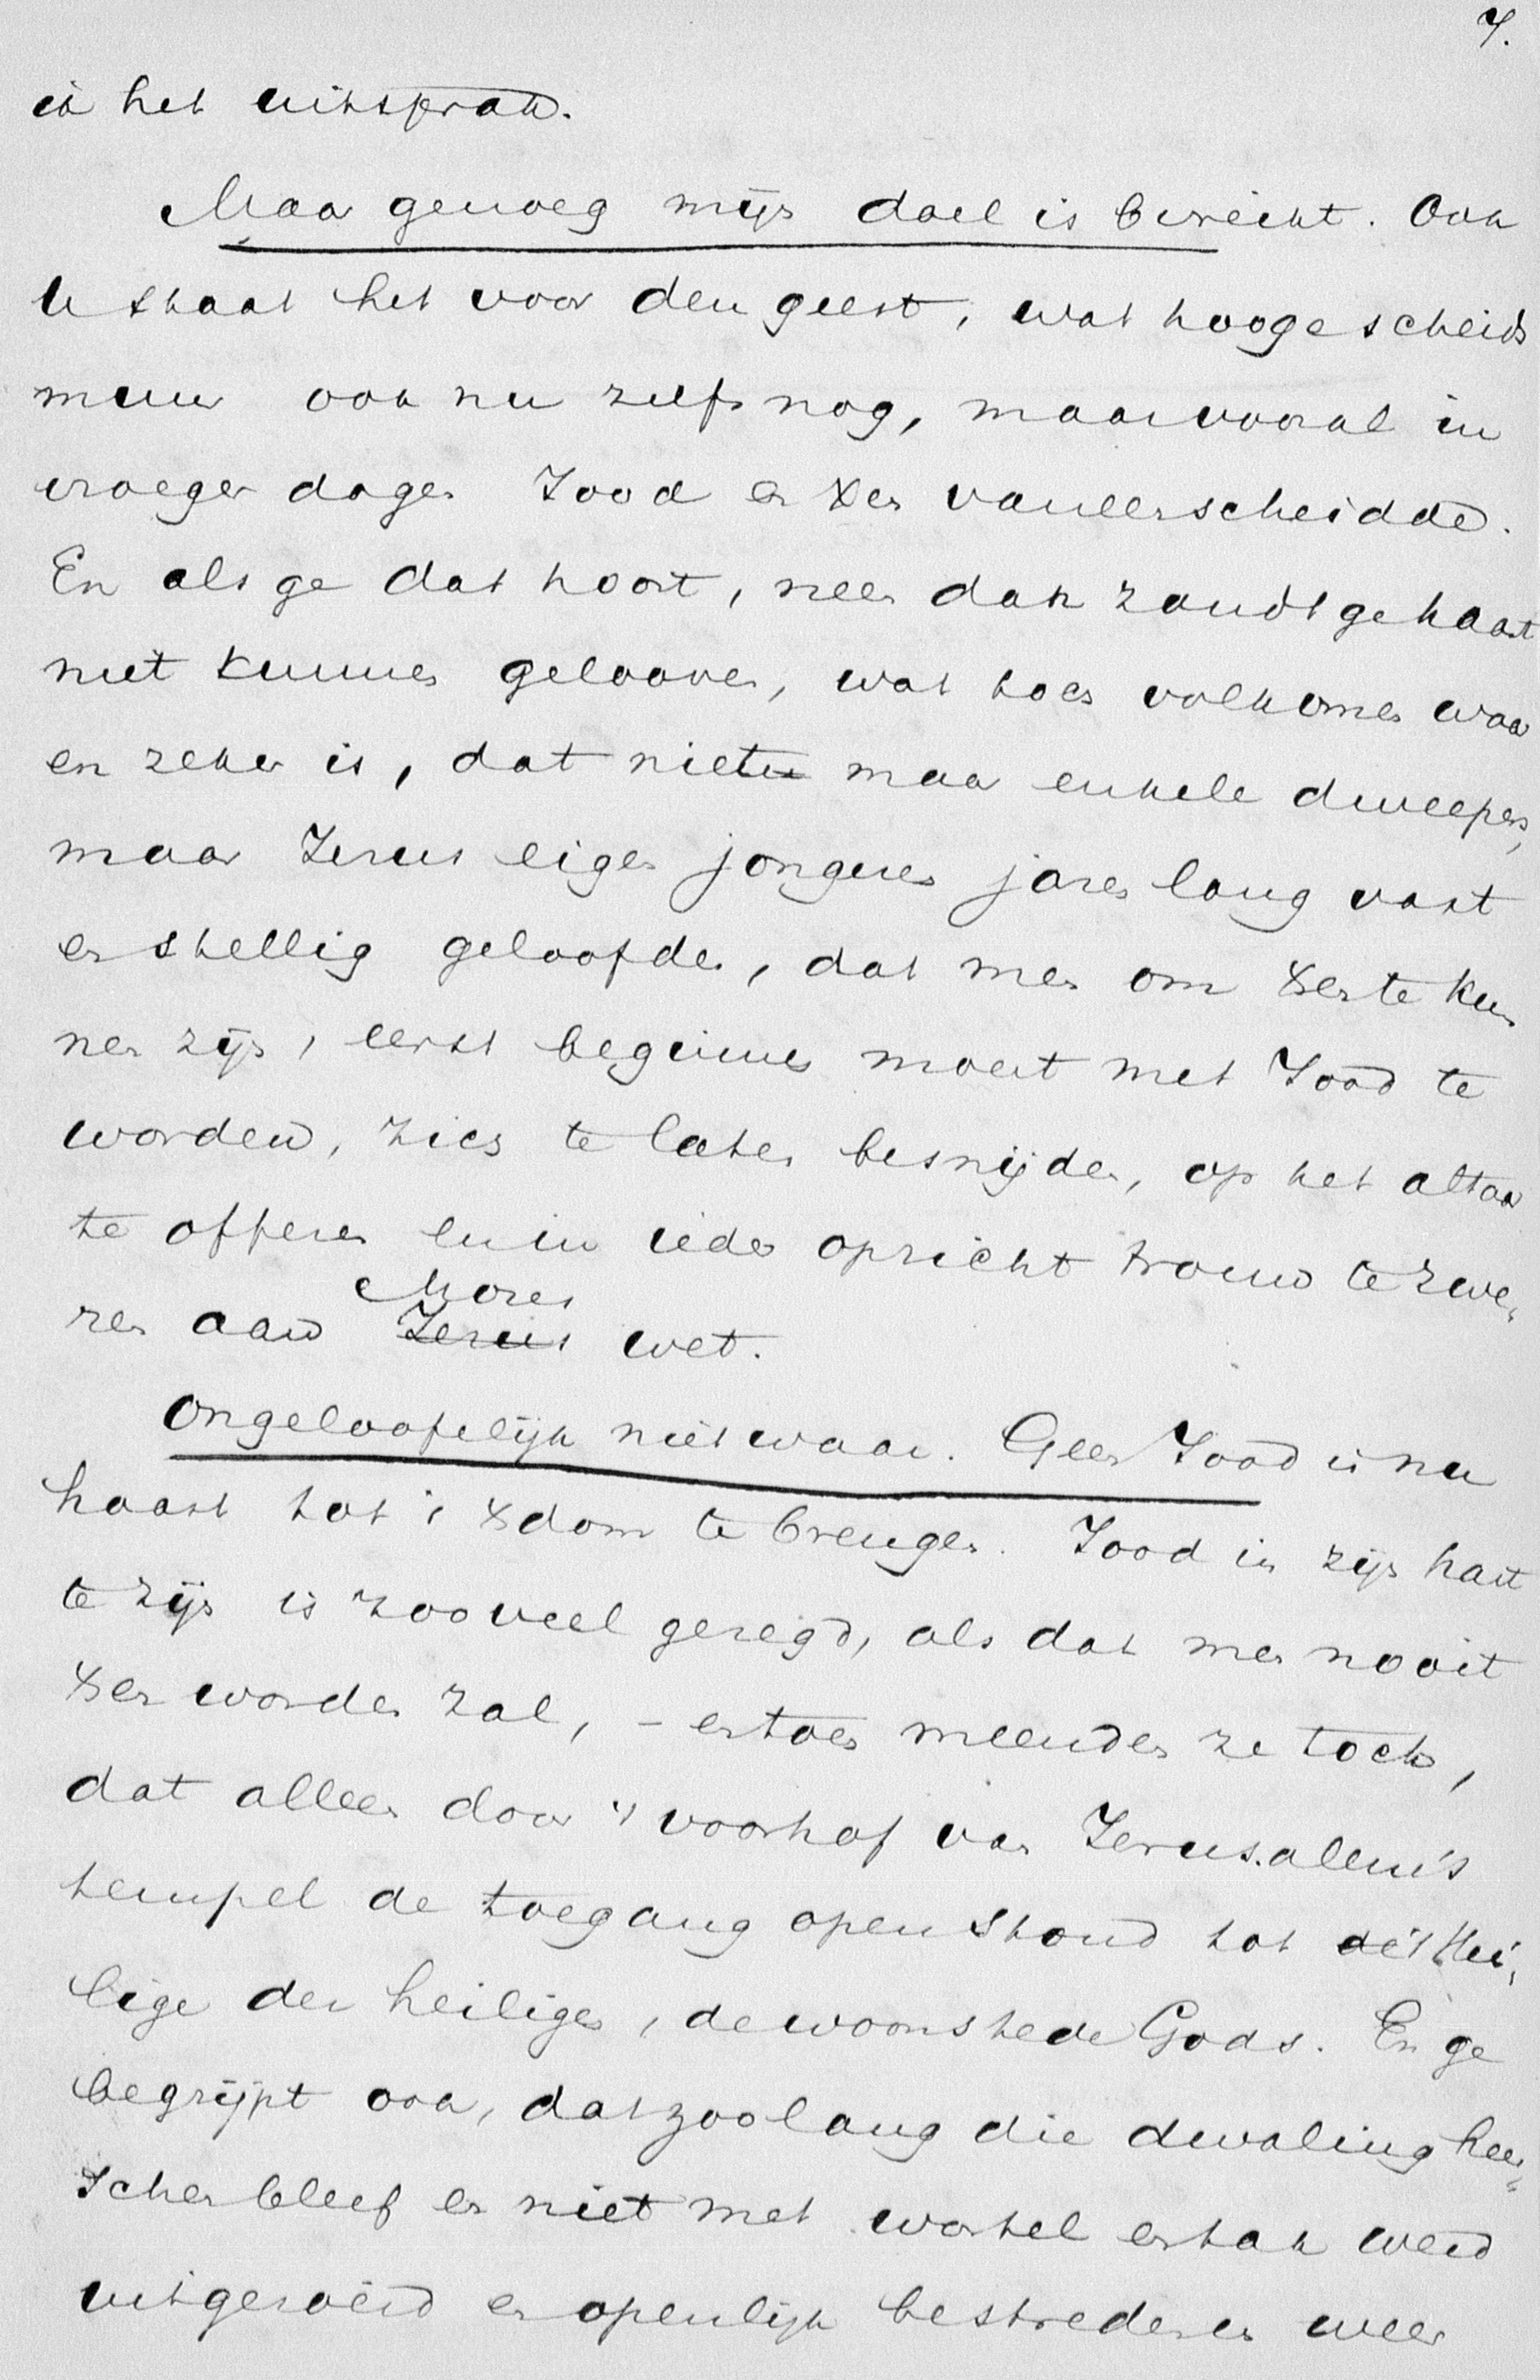 7.
ik het uitsprak.
Maar genoeg mijn doel is bereikt. Ook
U staat het voor den geest, wat hooge scheids
muur ook nu zelfs nog, maar vooral in
vroeger dagen Jood en Xen vaneenscheidde.
En als ge dat hoort, neen dan zoudt ge haast
niet kunnen gelooven, wat toch volkomen waar
en zeker is, dat niet maar enkele dweepers,
maar Jezus eigen jongeren jaren lang vast
en stellig geloofden, dat men om Xen te kun
nen zijn, eerst beginnen moest met Jood te
worden, zich te laten besnijden, op het altaar
te offeren en in ieder opzicht trouw te zwe„
Mozes
ren aan Jezus wet.
Ongeloofelijk niet waar. Geen Jood is nu
haast tot 't Xdom te brengen. Jood in zijn hart
te zijn is zooveel gezegd, als dat men nooit
Xen worden zal, – en toen meenden ze toch,
dat alleen door 't voorhof van Jerusalem's
tempel de toegang open stond tot de 't Hei„
lige der heiligen, de woonstede Gods. En ge
begrijpt ook, dat zoolang die dwaling heer„
schen bleef en niet met wortel en tak werd
uitgeroeid en openlijk bestreden en weer